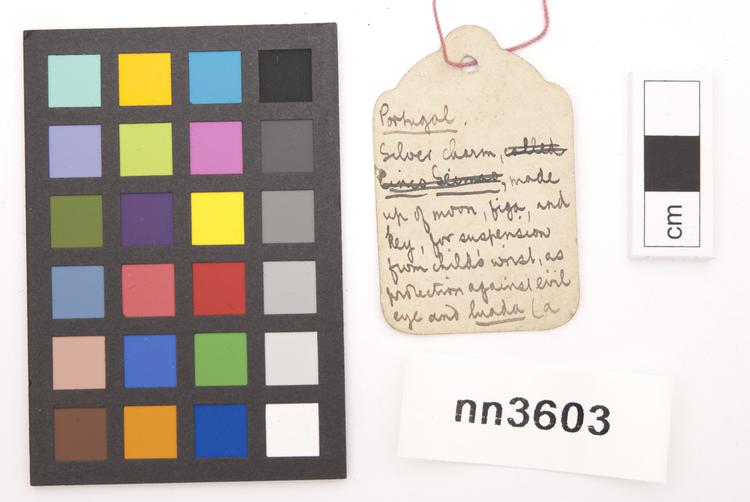 Portugal.
Silver charm, called
Cinco Seimao, made
up of moon, figa, and
key, for suspension
from child's wrist, as
protection against evil
eye and luada (a
cm
nn3603